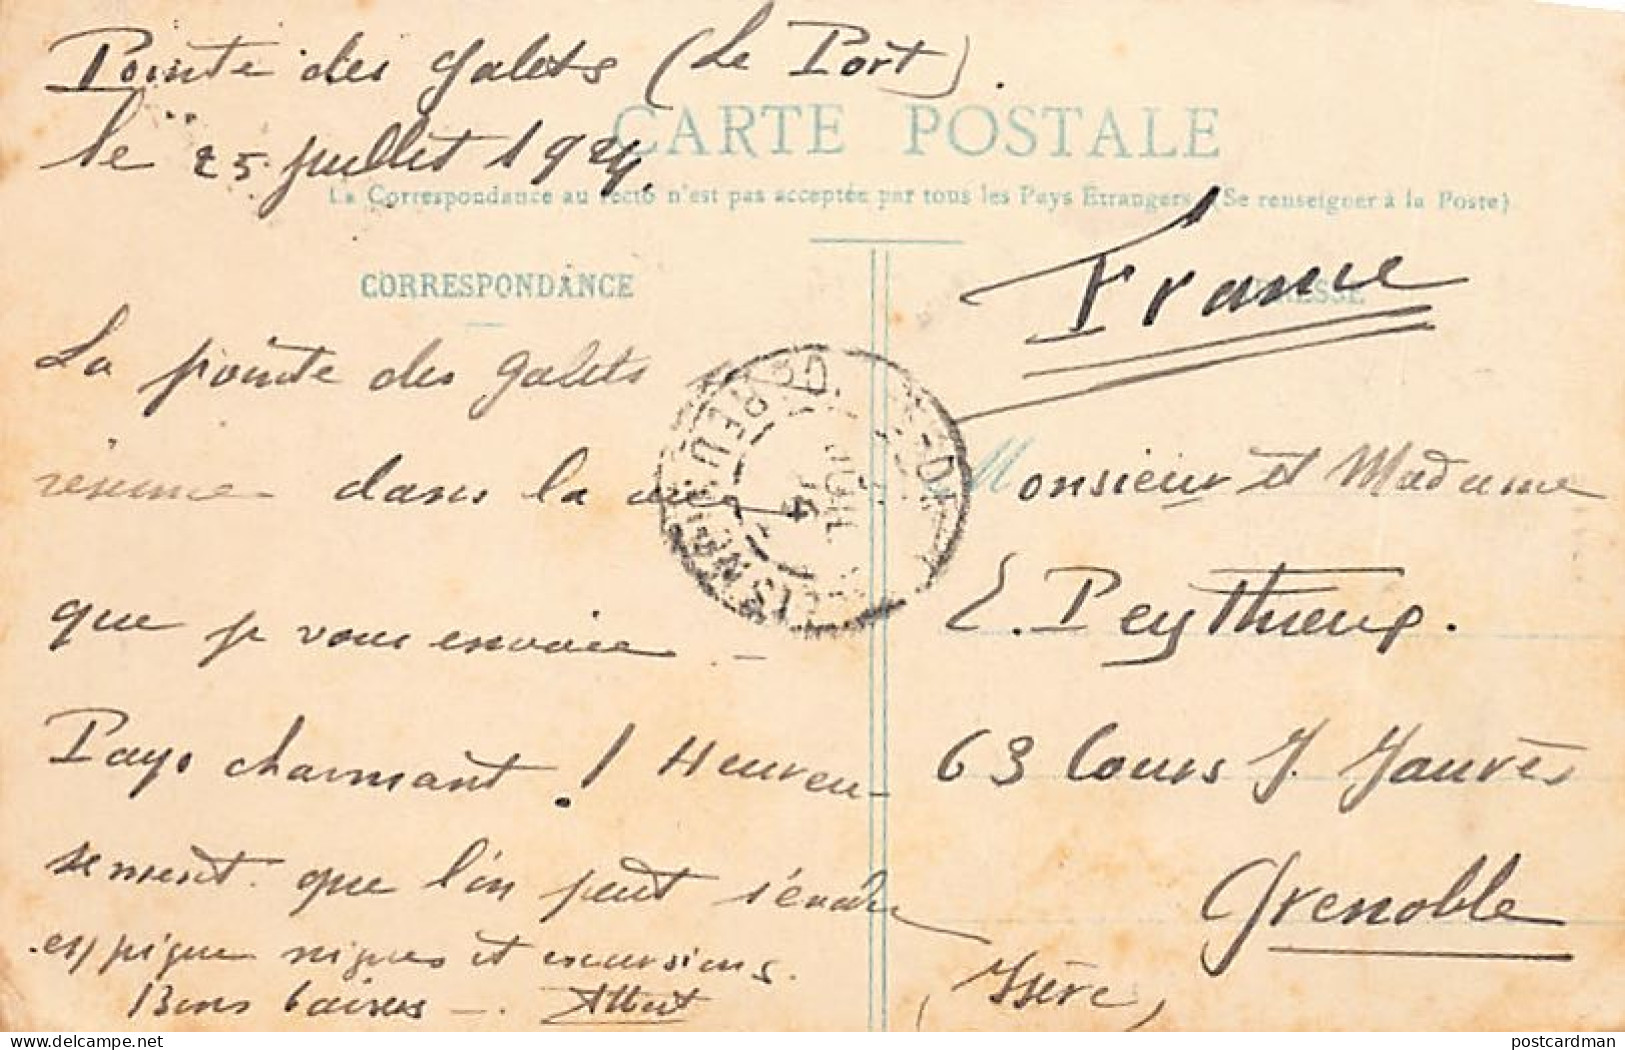 Pointe des Galets (Le Port).
le 25 juillet 1924.
CARTE POSTALE
La Correspondance au recto n'est pas acceptée par tous les Pays Étrangers (Se renseigner à la Poste)
CORRESPONDANCE
La pointe des Galets
résumée dans la vue
que je vous envoie. –
Pays charmant ! Heureu-
sement que l'on peut s'évader
en pique niques et excursions.
Bons baisers –. Albert
France
ADRESSE
Monsieur et Madame
E. Peythieup.
63 Cours J. Jaurès
Grenoble
(Isère)
postcardman